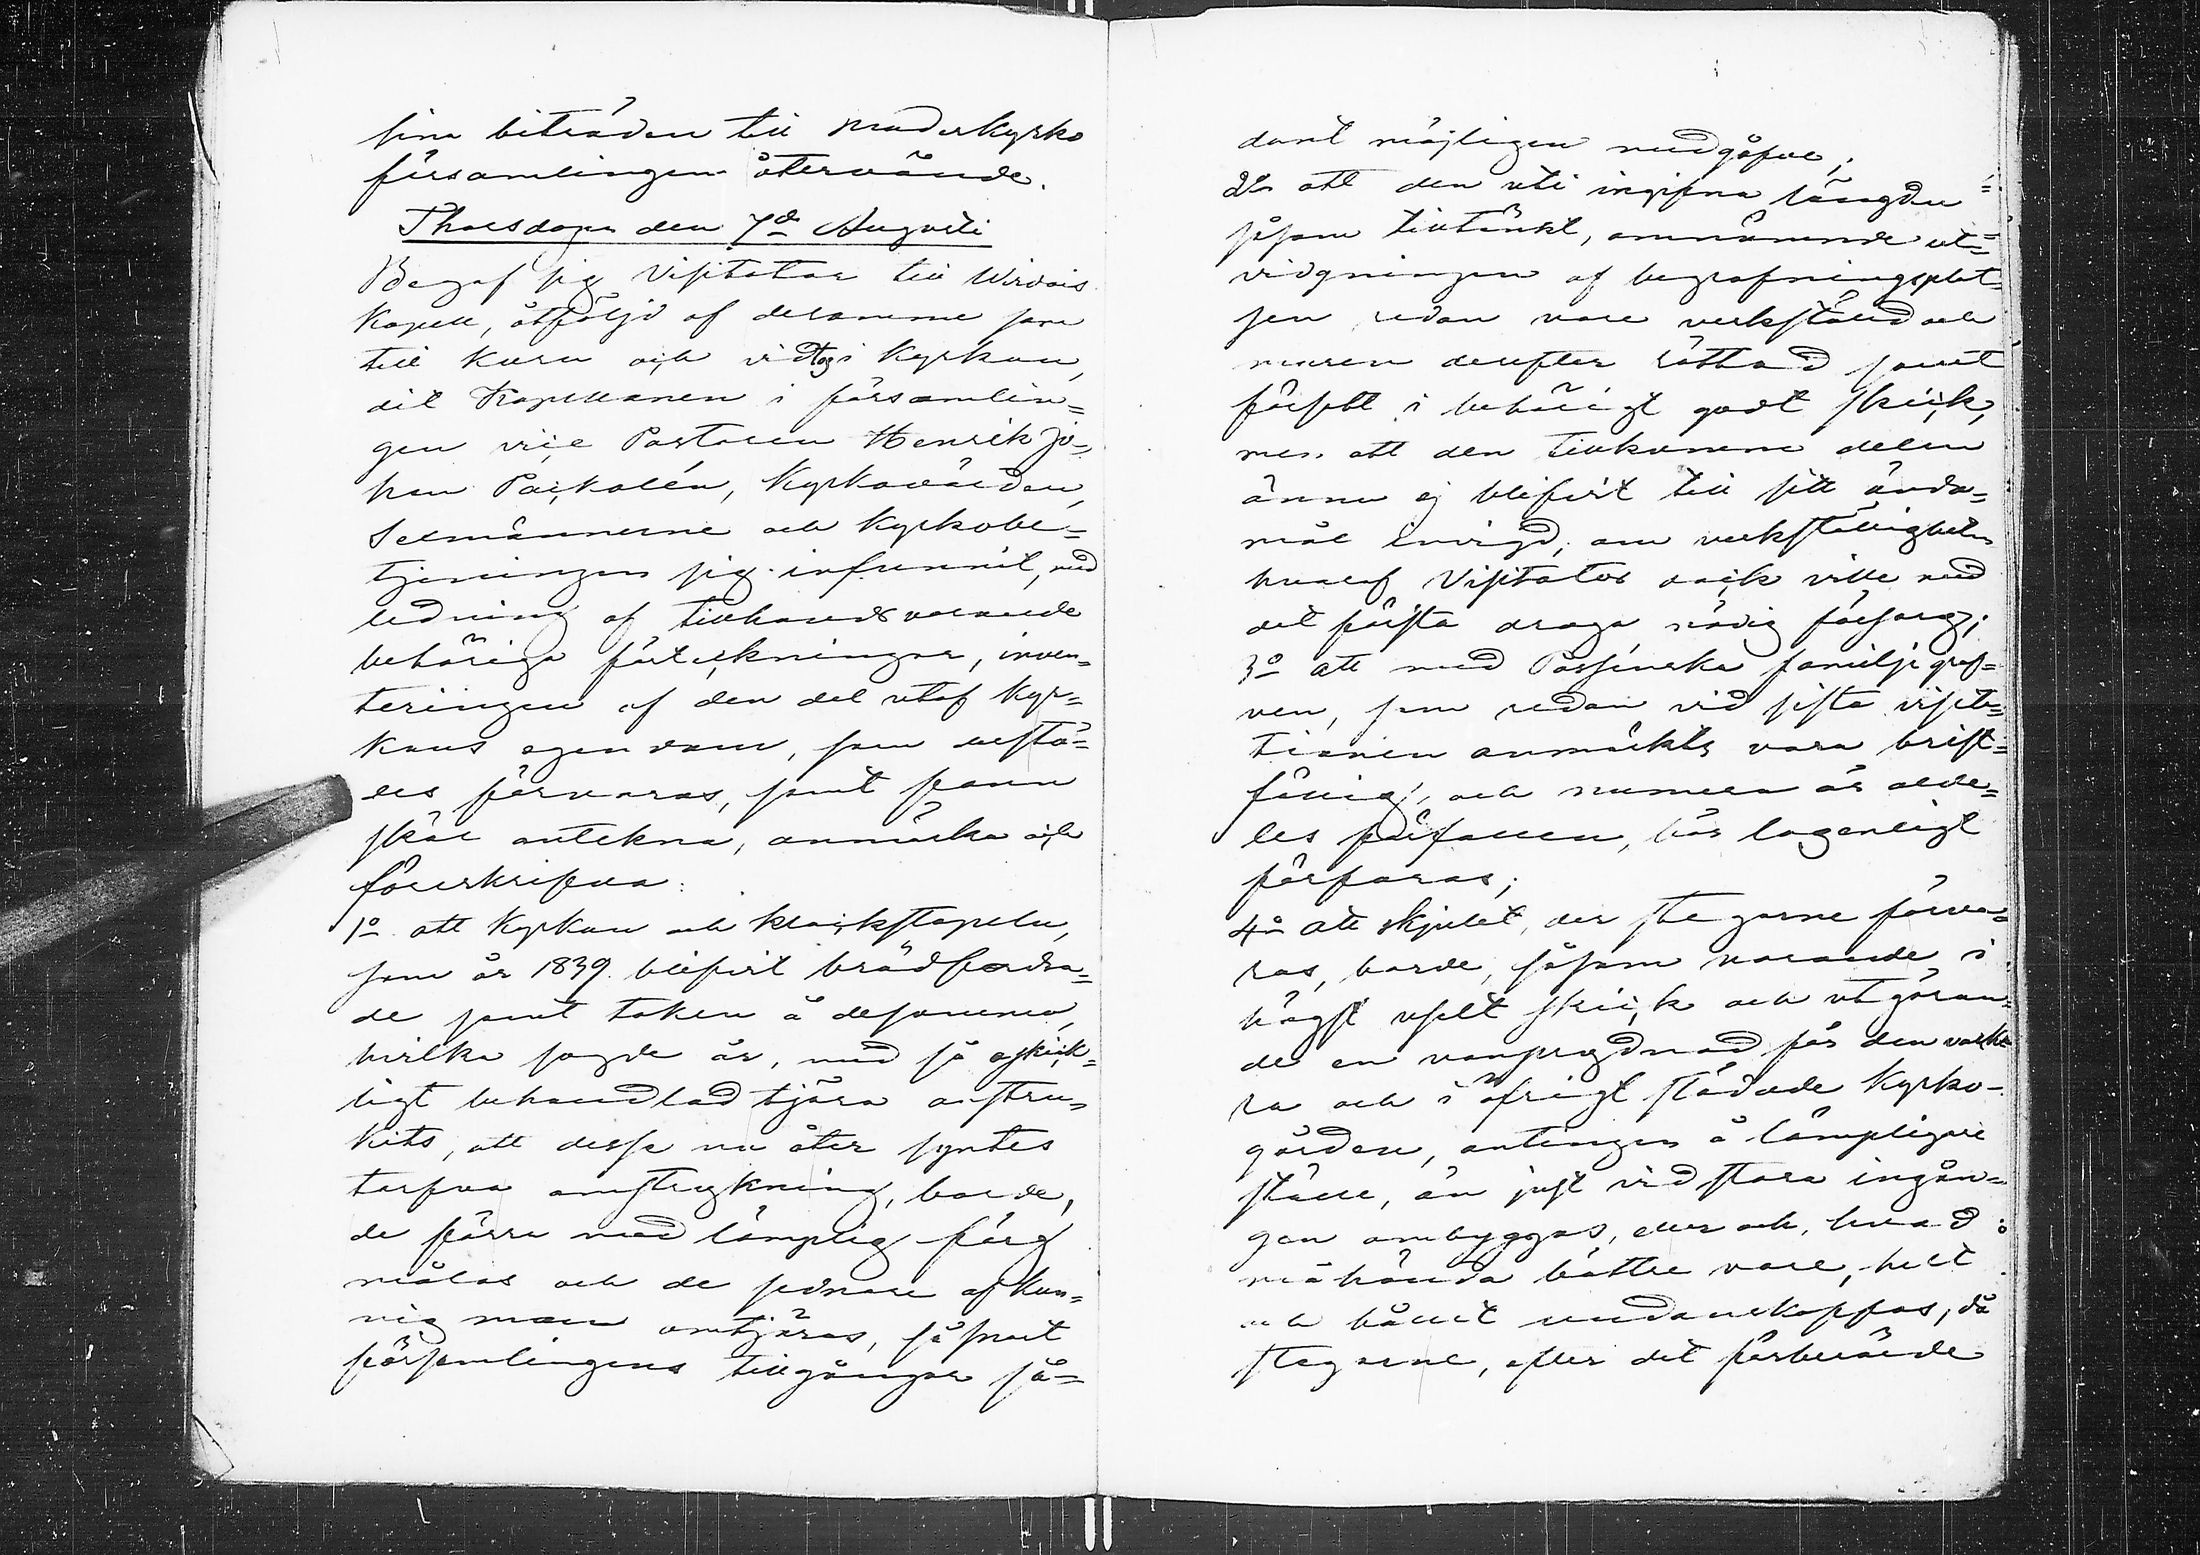 sina biträden till moderkyrko
församlingen återvände.
Thorsdagen den 7de Augusti
Begaf sig Visitator till Wirdois
Kapell, åtföljd af desamme som
till Kuru och vidtog i Kyrkan,
dit Kapellanen i församlin=
gen vice Pastoren Henrik Jo=
han Packalén, Kyrkovärden,
Sexmännerne och Kyrkobe=
tjeningen sig infunnit, med
ledning af tillhands varande
behöriga förteckningar, inven=
teringen af den del utaf Kyr=
kans egendom, som derstä=
des förvaras, samt fann
skäl antekna, anmärka och
föreskrifva:
1o att Kyrkan och klockstapeln,
som år 1839 blifvit brädfordra=
de samt taken å desamma,
hvilka sagde år, med så oskick=
ligt behandlad tjära anstru=
kits, att dessa nu åter syntes
tarfva omstrykning, borde,
de förra med lämplig färg
målas och de sednare af kun=
nig man omtjäras, såsnart
församlingens tillgångar så=
dant möjligen medgåfve;
2o att den uti ingifna längden
såsom tilltänkt, omnämnde ut=
vidgningen af begrafningsplat=
sen redan vore verkställd och
muren derefter rättad samt
försatt i behörigt godt skick,
men att den tillkomne delen
ännu ej blifvit till sitt ända=
mål invigd, om verkställigheten
hvaraf Visitator ock ville med
det första draga nödig försorg;
3o att med Forsénska familje graf=
ven, som redan vid sista visita=
tionen anmärkts vara brist=
fällig, och numera är alde=
les förfallen, bör lagenligt
förfaras;
4o att skjulet, der stegarne förva=
ras, borde, såsom varande i
högst uselt skick och utgöran=
de en vanprydnad för den vack=
ra och i öfrigt städade Kyrko=
gården, antingen å lämpligare
ställe, än just vid stora ingån=
gen ombyggas, eller ock, hvad
måhända bättre vore, helt
och hållet undanskaffas, då
stegarne, efter det förberörde